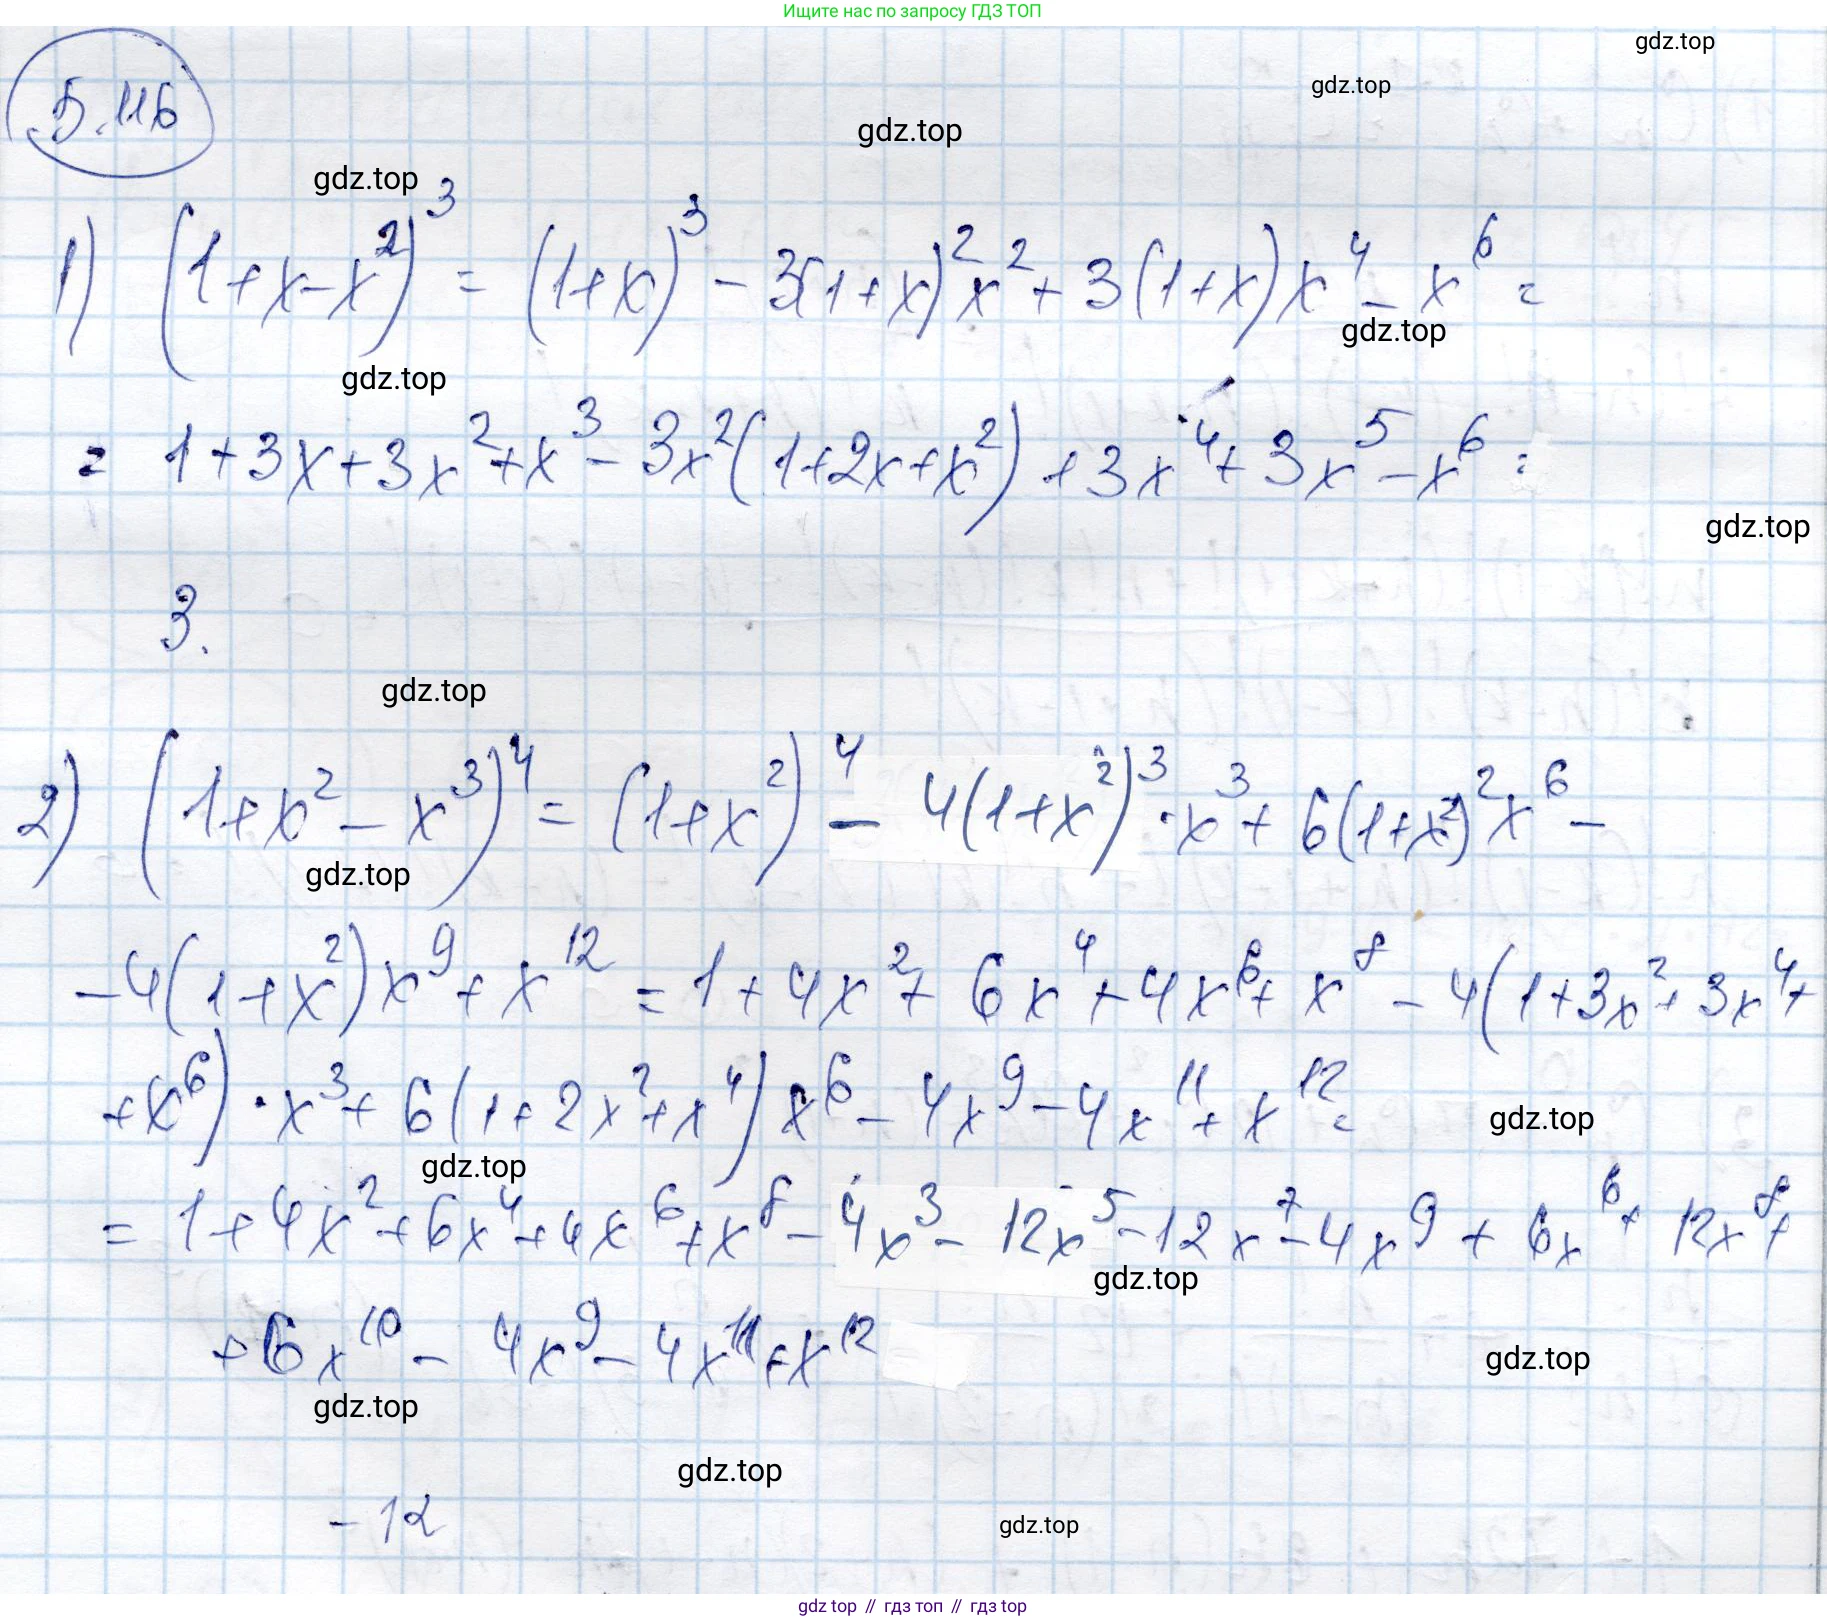 Ищите нас по запросу ГДЗ ТОП
gdz.top
gdz.top
5.116
gdz.top
gdz.top
1) (1+x-x²)³ = (1+x)³ - 3(1+x)²x² + 3(1+x)x⁴ - x⁶ =
gdz.top
gdz.top
= 1+3x+3x²+x³ - 3x²(1+2x+x²) + 3x⁴ + 3x⁵ - x⁶ =
gdz.top
3.
gdz.top
2) (1+x² - x³)⁴ = (1+x²)⁴ - 4(1+x²)³·x³ + 6(1+x²)²x⁶ -
gdz.top
-4(1+x²)x⁹ + x¹² = 1 + 4x² + 6x⁴ + 4x⁶ + x⁸ - 4(1+3x²+3x⁴+
+x⁶)·x³ + 6(1+2x²+x⁴)x⁶ - 4x⁹ - 4x¹¹ + x¹² =
gdz.top
gdz.top
= 1+4x²+6x⁴+4x⁶+x⁸ - 4x³ - 12x⁵ - 12x⁷ - 4x⁹ + 6x⁶ + 12x⁸ +
gdz.top
+6x¹⁰ - 4x⁹ - 4x¹¹ + x¹²
gdz.top
gdz.top
gdz.top
-12
gdz.top
gdz top // гдз топ // гдз top